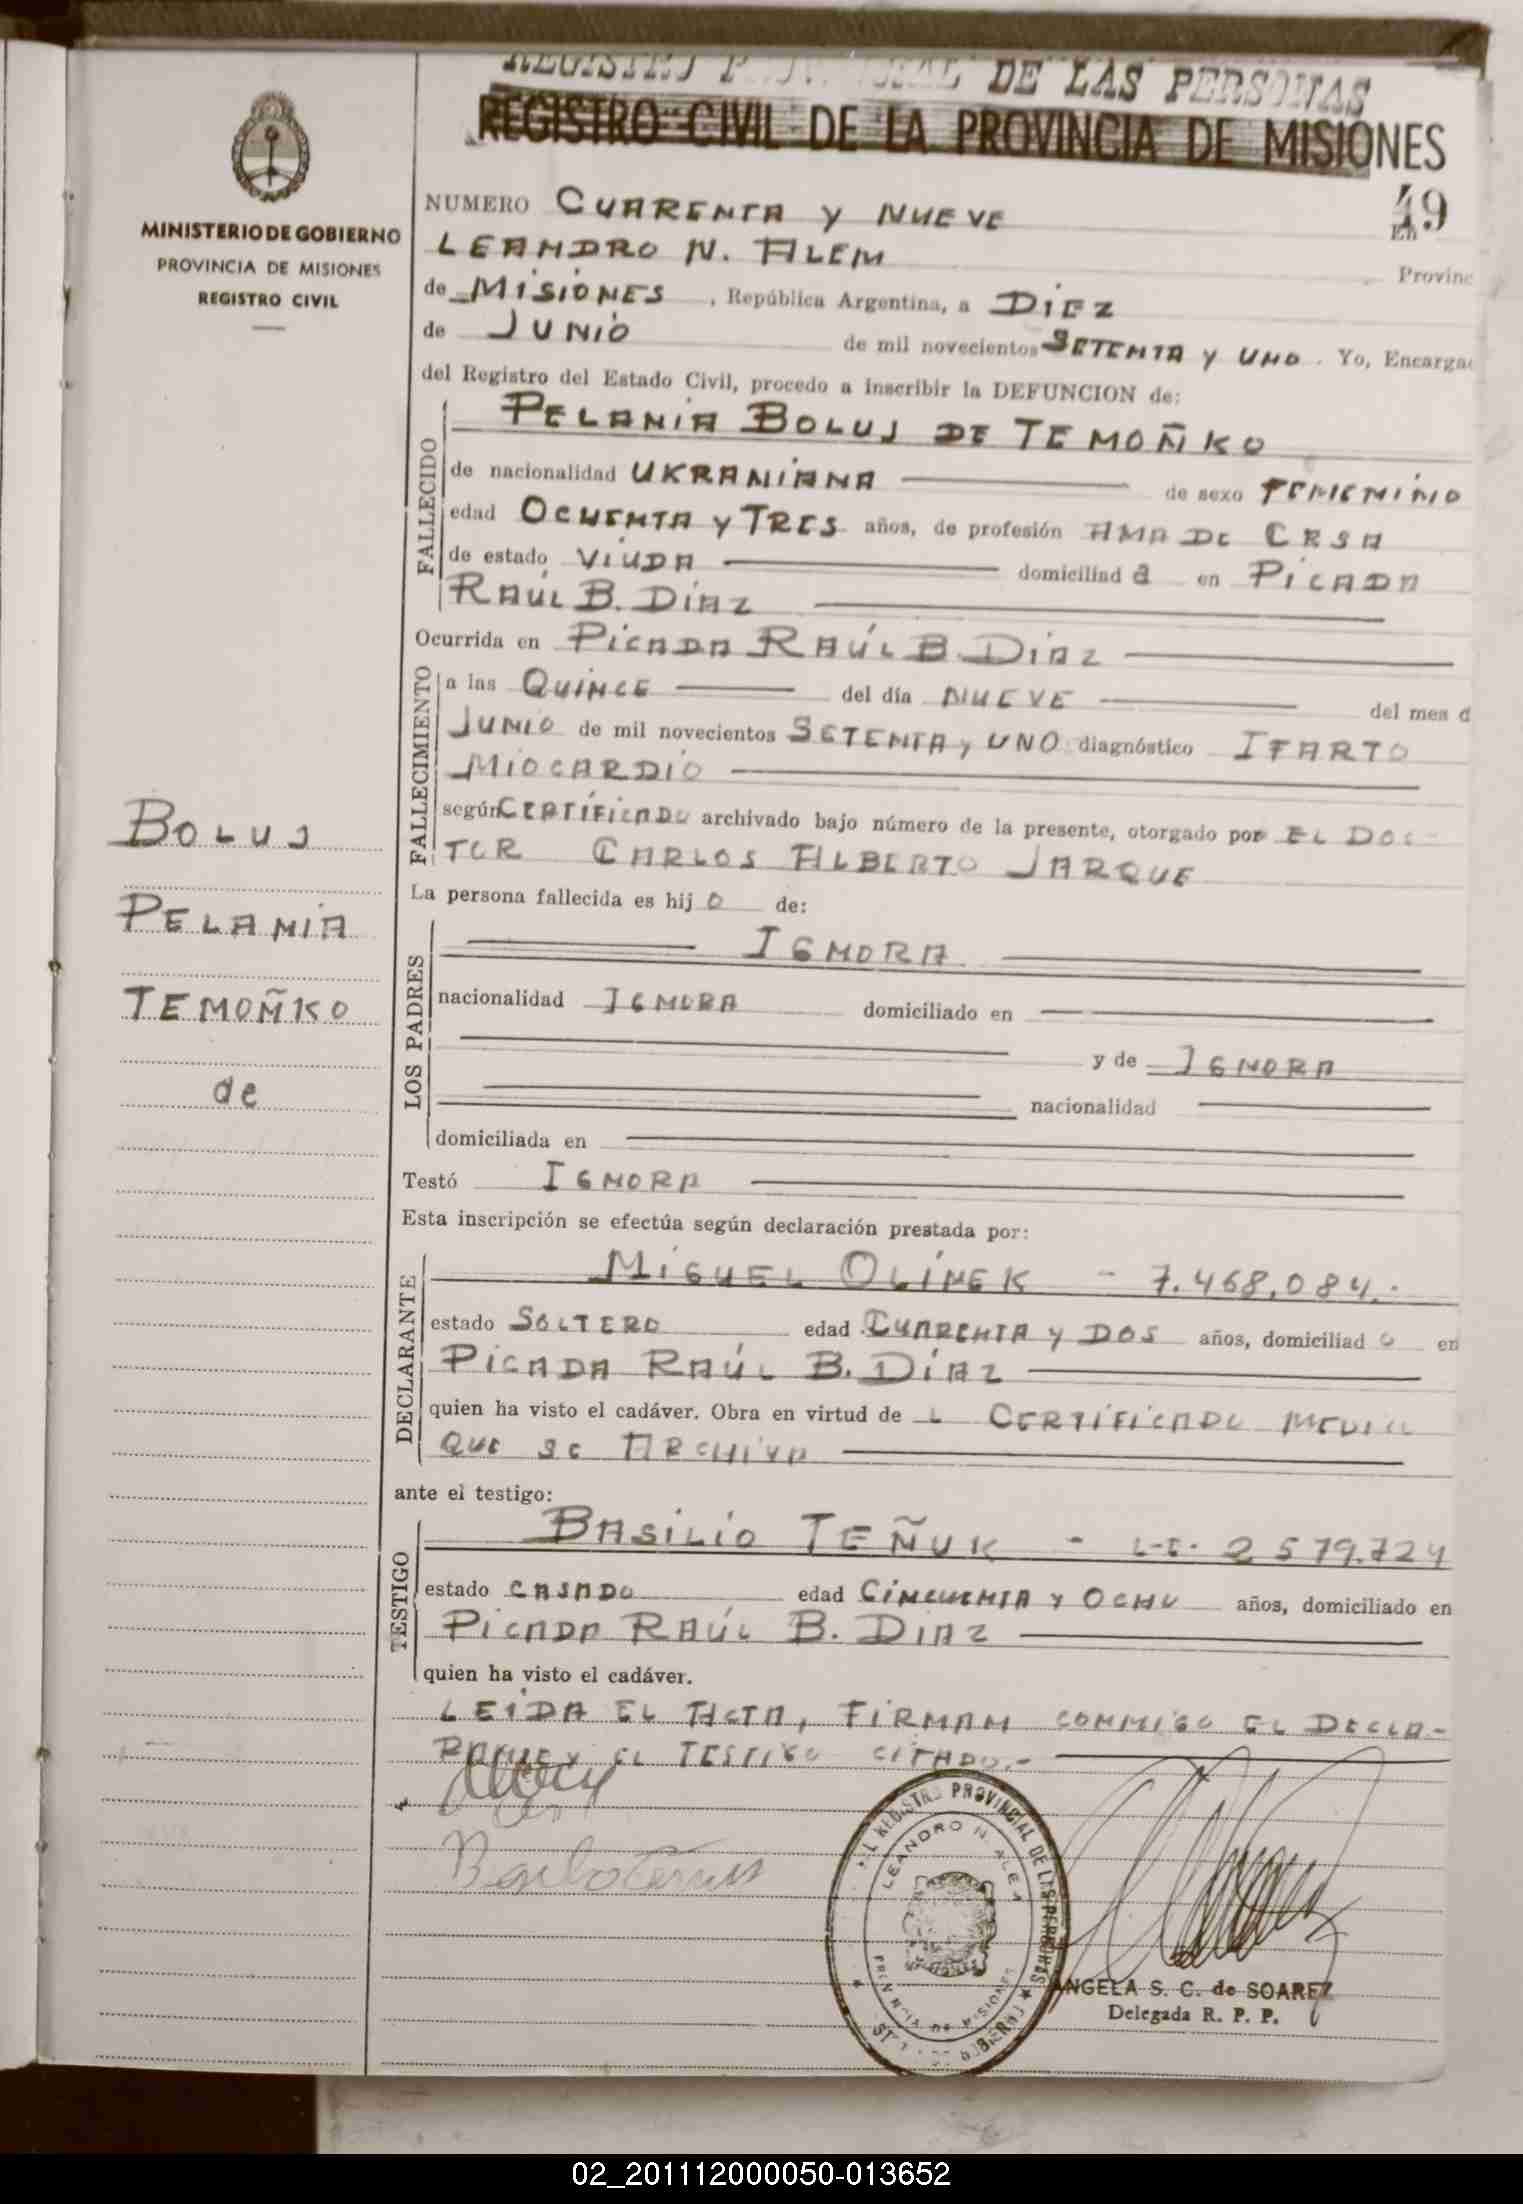 REGISTRO DE LAS PERSONAS
REGISTRO CIVIL DE LA PROVINCIA DE MISIONES
MINISTERIO DE GOBIERNO
PROVINCIA DE MISIONES
REGISTRO CIVIL
NUMERO CUARENTA Y NUEVE 49
En
LEANDRO N. ALEM Provinc
de MISIONES, República Argentina, a DIEZ
de JUNIO de mil novecientos SETENTA Y UNO. Yo, Encarga
del Registro del Estado Civil, procedo a inscribir la DEFUNCION de:
FALLECIDO
PELANIA BOLUJ DE TEMOÑKO
de nacionalidad UKRANIANA de sexo FEMENINO
edad OCHENTA Y TRES años, de profesión AMA DE CASA
de estado VIUDA domiciliad a en PICADA
RAÚL B. DÍAZ
Ocurrida en PICADA RAÚL B. DIAZ
FALLECIMIENTO
a las QUINCE del día NUEVE del mes d
JUNIO de mil novecientos SETENTA Y UNO diagnóstico IFARTO
MIOCARDIO
según CERTIFICADO archivado bajo número de la presente, otorgado por EL DOC-
TOR CARLOS ALBERTO JARQUE
La persona fallecida es hij o de:
BOLUJ
PELANIA
TEMOÑKO
de
LOS PADRES
IGNORA
nacionalidad IGNORA domiciliado en
y de IGNORA
nacionalidad
domiciliada en
Testó IGNORA
Esta inscripción se efectúa según declaración prestada por:
DECLARANTE
MIGUEL OLINEK - 7.468.084.-
estado SOLTERO edad CUARENTA Y DOS años, domiciliad o en
PICADA RAÚL B. DÍAZ
quien ha visto el cadáver. Obra en virtud de L CERTIFICADO MEDIC
QUE SE ARCHIVA
ante el testigo:
TESTIGO
BASILIO TEÑUK - L-E- 2 579.724
estado CASADO edad CINCUENTA Y OCHO años, domiciliado en
PICADA RAÚL B. DIAZ
quien ha visto el cadáver.
LEIDA EL ACTA, FIRMAN CONMIGO EL DECLA-
RANTE Y EL TESTIGO CITADO.-
REGISTRO PROVINCIAL DE LAS PERSONAS
LEANDRO N. ALEM
PROVINCIA DE MISIONES
MISIONES
ANGELA S. C. de SOAREZ
Delegada R. P. P.
02_201112000050-013652